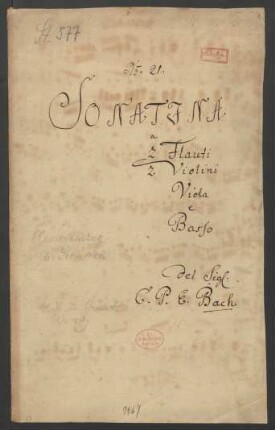 St 577
No. 21.
SONATINA
a
2 Flauti
2 Violini
Viola
e
Basso
del Sigl.
C. P. E. Bach.